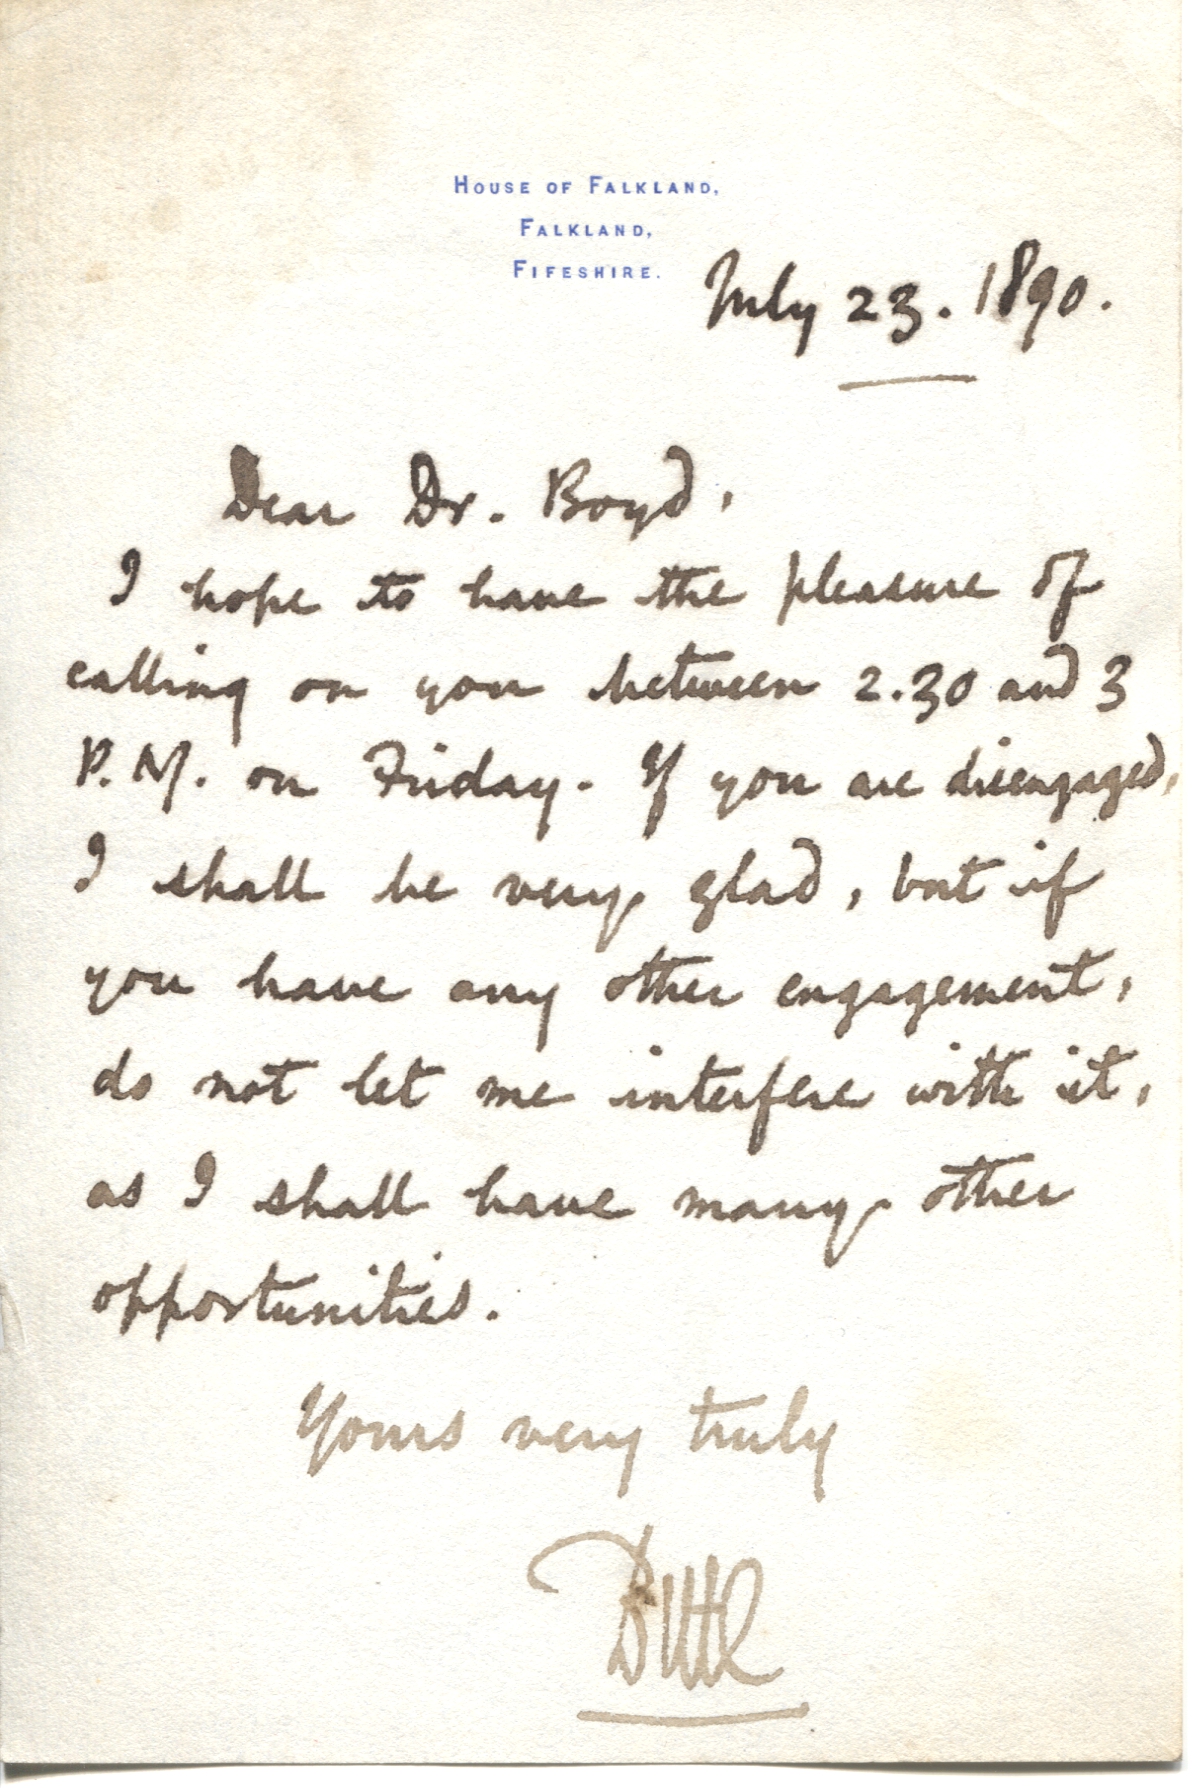 House of Falkland,
Falkland,
Fifeshire.
July 23. 1890.
Dear Dr. Boyd,
I hope to have the pleasure of
calling on you between 2.30 and 3
P.M. on Friday. If you are disengaged,
I shall be very glad, but if
you have any other engagement,
do not let me interfere with it,
as I shall have many other
opportunities.
Yours very truly
Bute